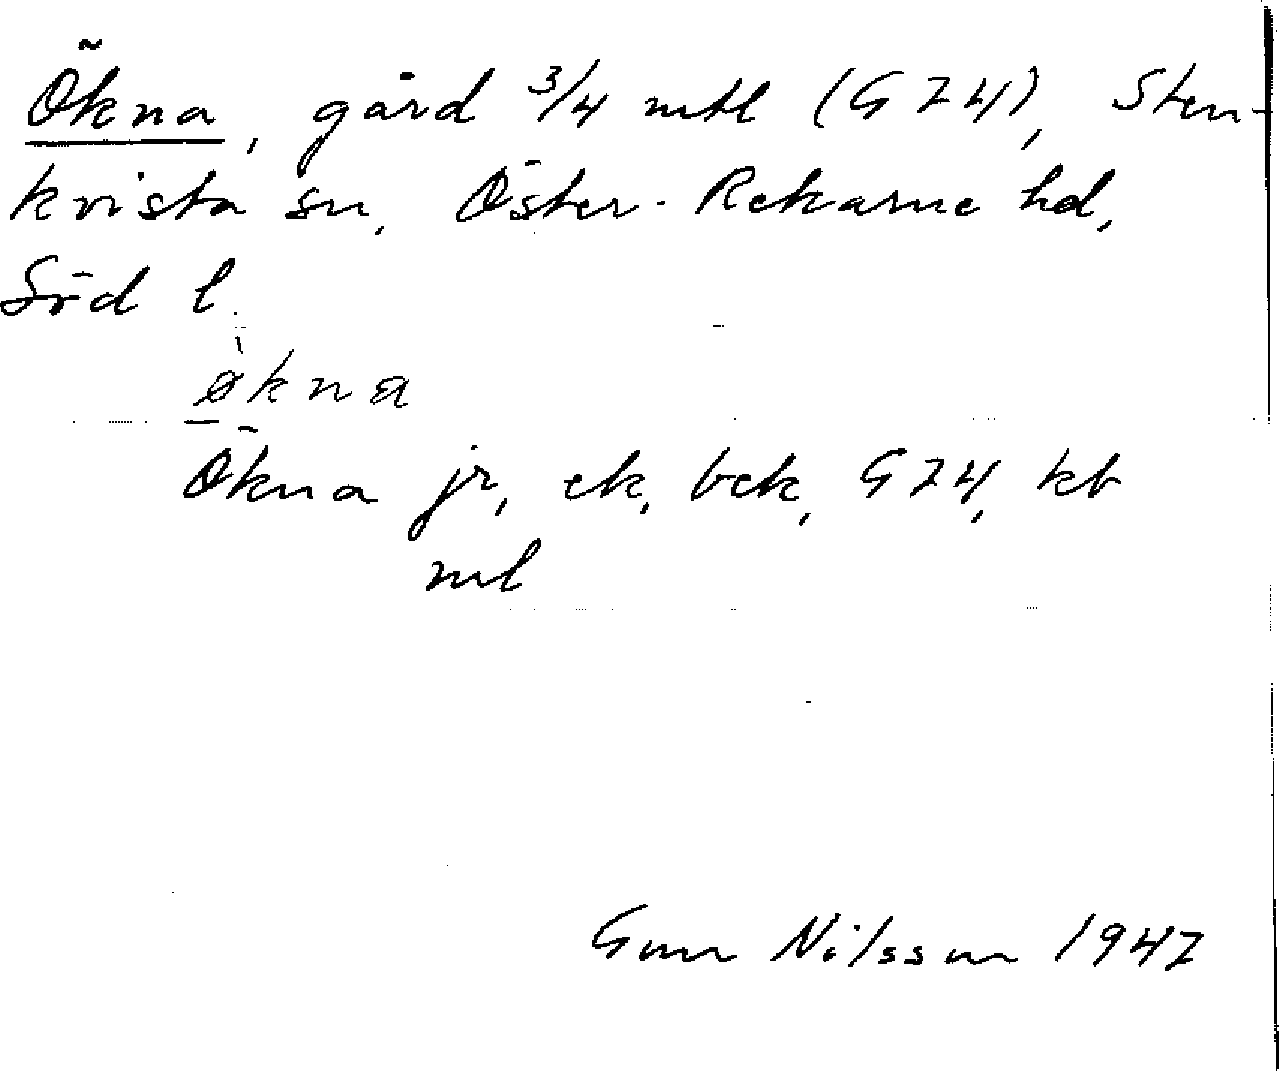 Ökna, gård 3/4 mtl (GZ4), Sten-
kvista sn, Öster-Rekarne hd,
Söd l.
ø̀kna
Ökna jr, ek, bek, GZ4, kb
ml
Gun Nilsson 1947